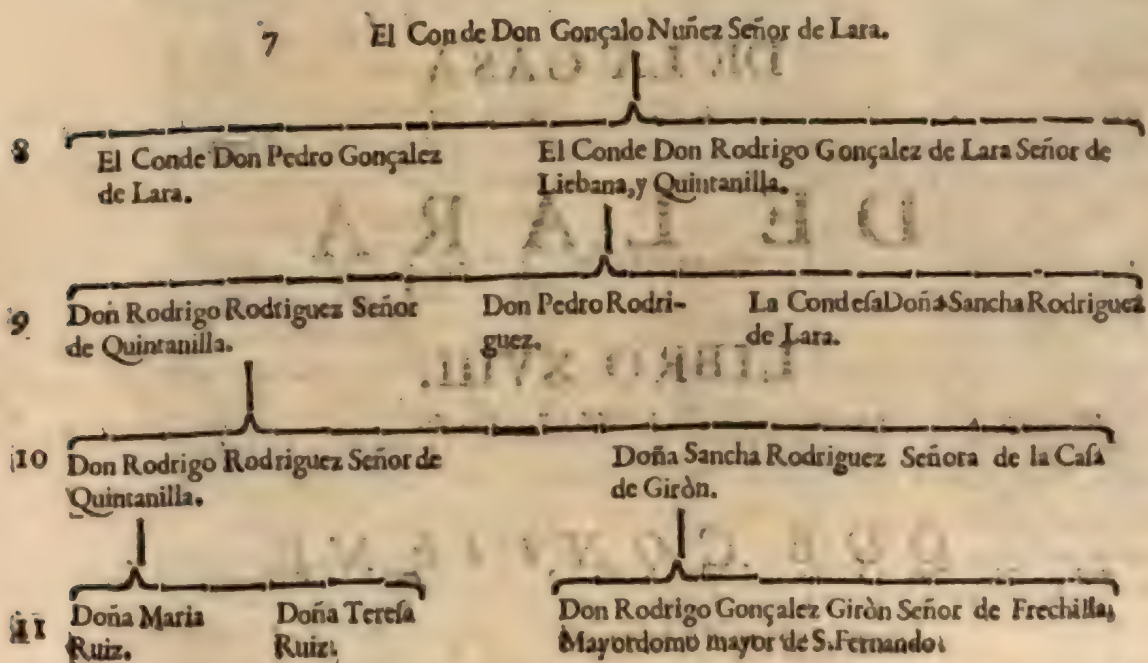 7 El Conde Don Gonçalo Nuñez Señor de Lara.
8 El Conde Don Pedro Gonçalez
de Lara.
El Conde Don Rodrigo Gonçalez de Lara Señor de
Liebana, y Quintanilla.
9 Don Rodrigo Rodriguez Señor
de Quintanilla.
Don Pedro Rodri-
guez.
La Condeſa Doña Sancha Rodriguez
de Lara.
10 Don Rodrigo Rodriguez Señor de
Quintanilla.
Doña Sancha Rodriguez Señora de la Caſa
de Giròn.
11 Doña Maria
Ruiz.
Doña Tereſa
Ruiz.
Don Rodrigo Gonçalez Giròn Señor de Frechilla,
Mayordomo mayor de S. Fernando.